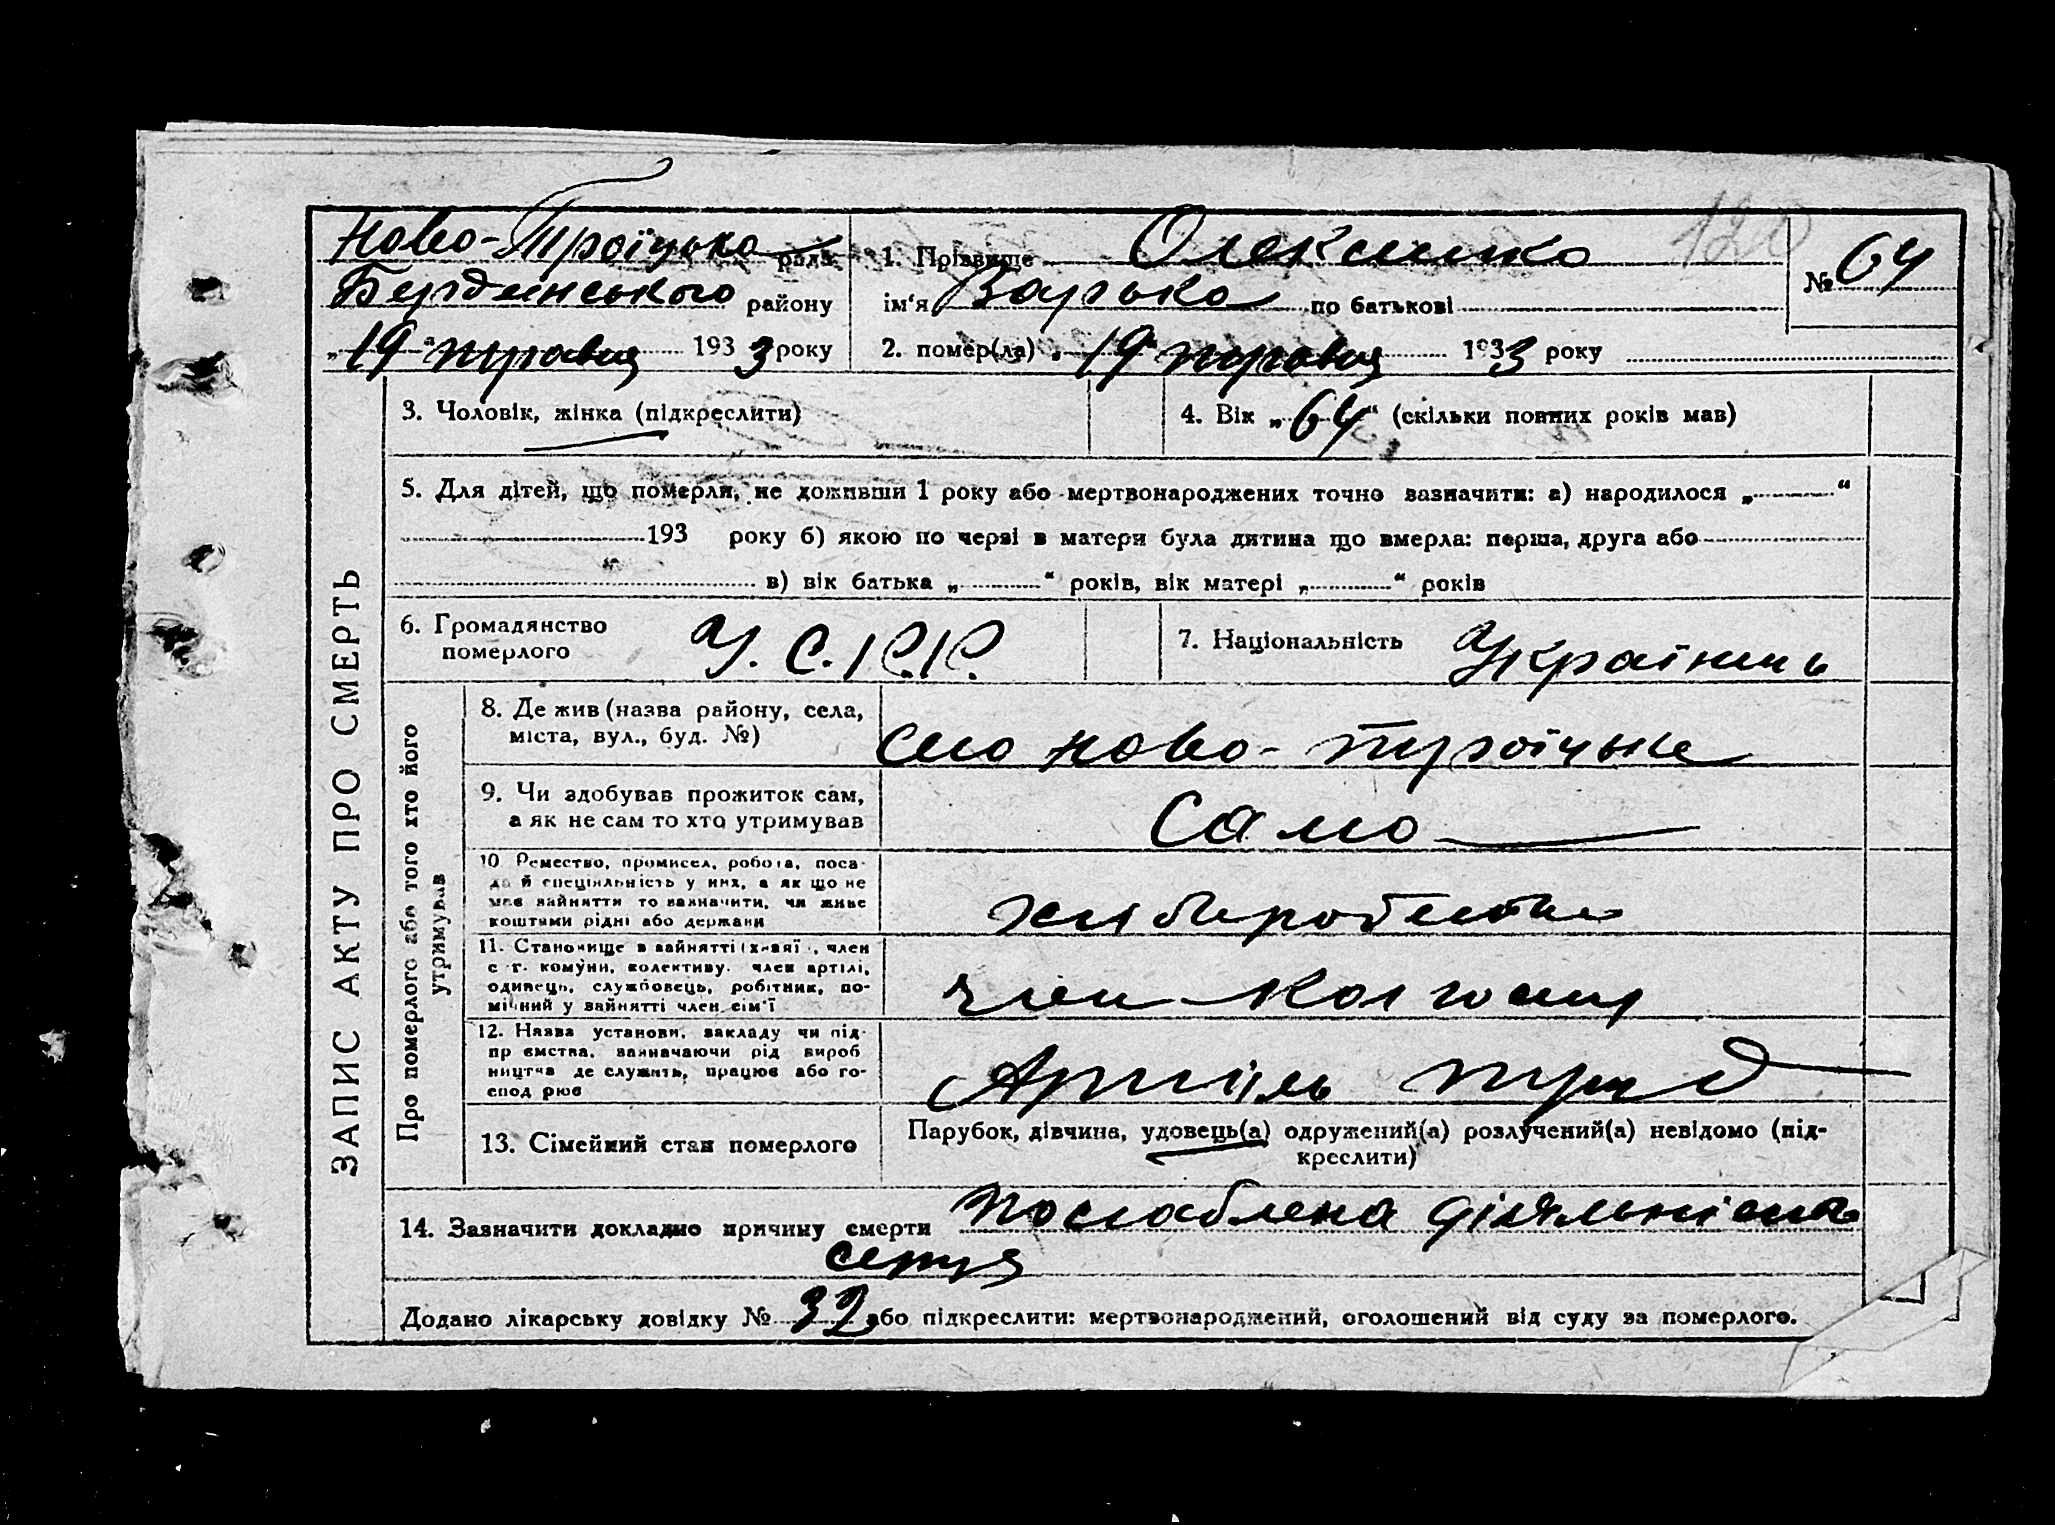 120
Ново-Троїцька рада
Бердянського району
„19“ травня 1933 року
1. Прізвище Олексенко
ім‘я Варька по батькові
№ 64
2. помер(ла) „19“ травня 1933 року
3. Чоловік, жінка (підкреслити)
4. Вік „64“ (скільки повних років мав)
5. Для дітей, що померли, не доживши 1 року або мертвонароджених точно зазначити: а) народилося „ “
193 року б) якою по черзі в матери була дитина що вмерла: перша, друга або
в) вік батька „ “ років, вік матері „ “ років
6. Громадянство
померлого У.С.Р.Р.
7. Національність Українець
ЗАПИС АКТУ ПРО СМЕРТЬ
Про померлого або того хто його
утримував
8. Де жив (назва району, села,
міста, вул., буд. №)
село Ново-Троїцьке
9. Чи здобував прожиток сам,
а як не сам то хто утримував
Само
10 Ремество, промисел, робота, поса-
да й спеціяльність у них, а як що не
мав зайняття то зазначити, чи живе
коштами рідні або держави
хліборобство
11. Становище в зайнятті (хазяї, член
с-г. комуни, колективу, член артілі,
одинець, службовець, робітник, по-
мічний у зайнятті член сім‘ї
член колгоспу
12. Назва установи, закладу чи під-
пр ємства, зазначаючи рід вироб
ництва де служить, працює або го-
спод рює
Артіль труд
13. Сімейний стан померлого
Парубок, дівчина, удовець(а) одружений(а) розлучений(а) невідомо (під-
креслити)
14. Зазначити докладно причину смерти Послаблена діяльність
серця
Додано лікарську довідку № 32 або підкреслити: мертвонароджений, оголошений від суду за померлого.